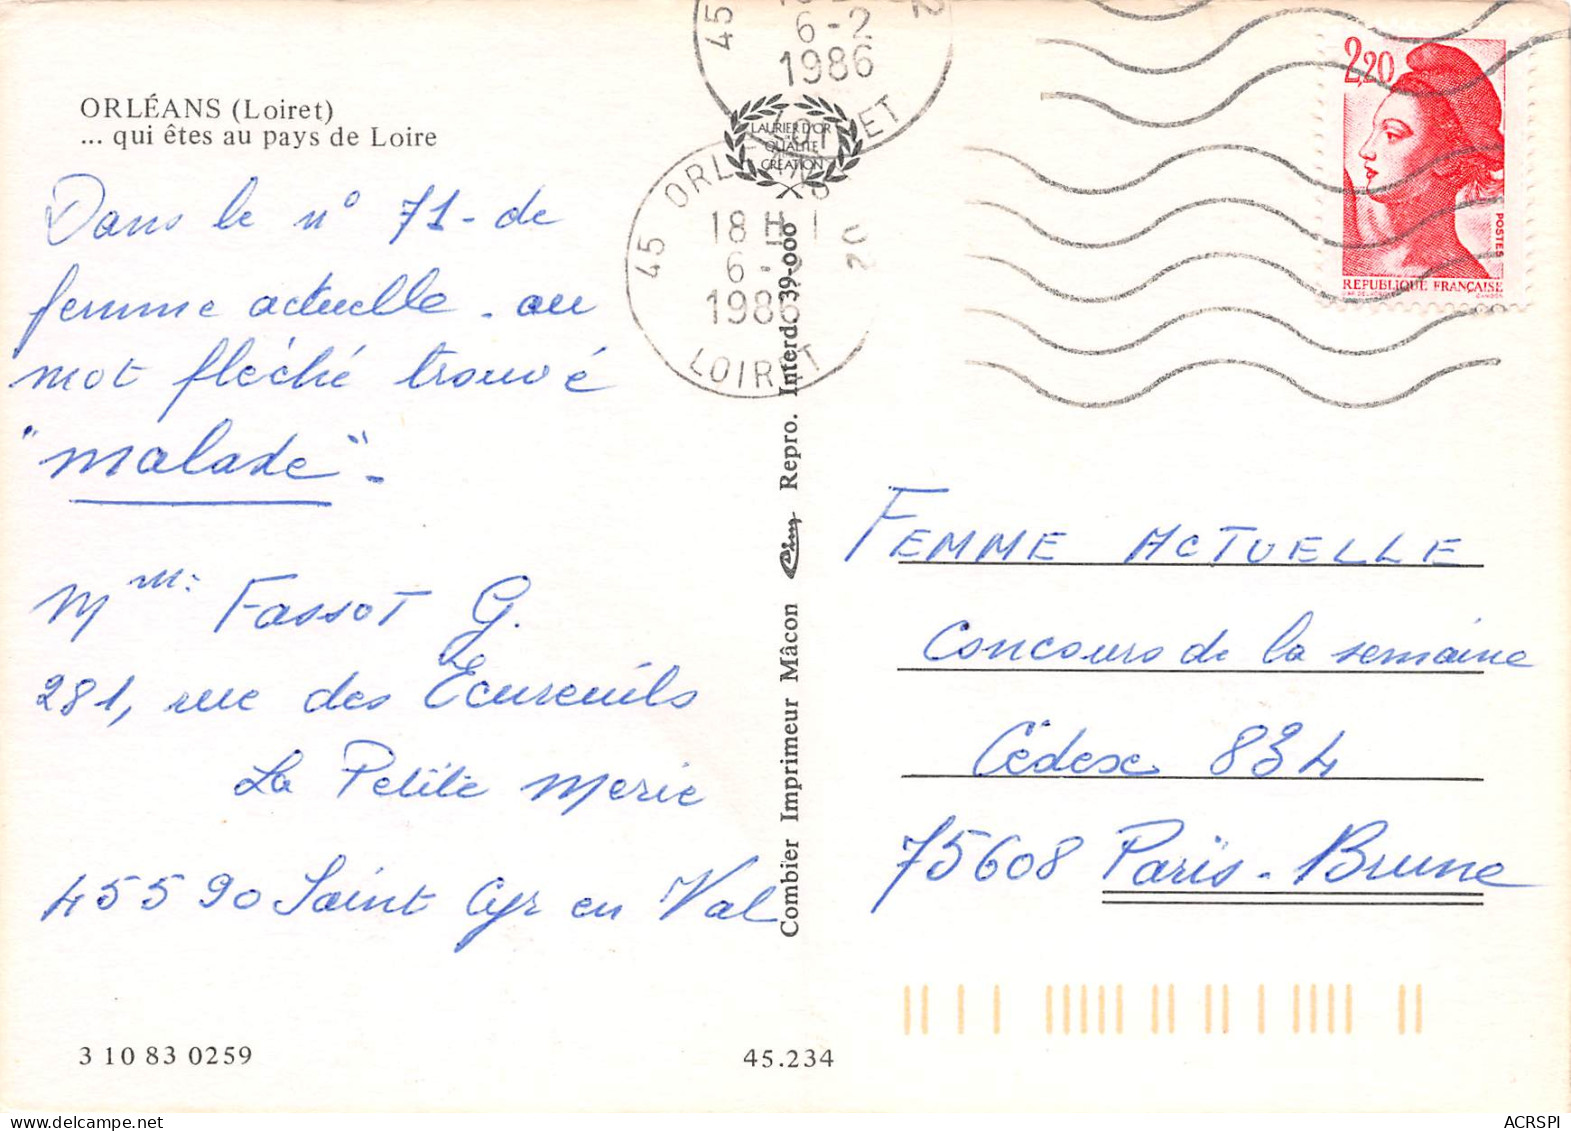 ORLÉANS (Loiret)
... qui êtes au pays de Loire
Dans le n° 71 - de
femme actuelle - au
mot fléché trouvé
"malade" -
Mme: Fassot G.
281, rue des Écureuils
La Petite Merie
45590 Saint Cyr en Val
3 10 83 0259
45
6-2
1986
LOIRET
02
LAURIER D'OR
QUALITE
CREATION
45 ORLEANS 02
18 H
6-2
1986
LOIRET
Combier Imprimeur Mâcon Cim Repro. Interd. 39-000
45.234
2,20
POSTES
REPUBLIQUE FRANÇAISE
FEMME ACTUELLE
Concours de la semaine
Cédexe 834
75608 Paris-Brune
ACRSPI